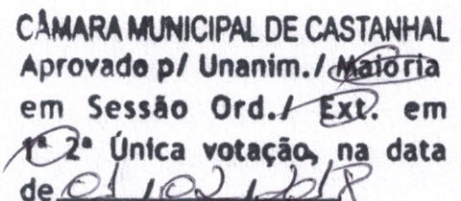 CÂMARA MUNICIPAL DE CASTANHAL
Aprovado p/ Unanim./ Maioria
em Sessão Ord./ Ext. em
1ª 2ª Única votação, na data
de 01 / 02 / 2018